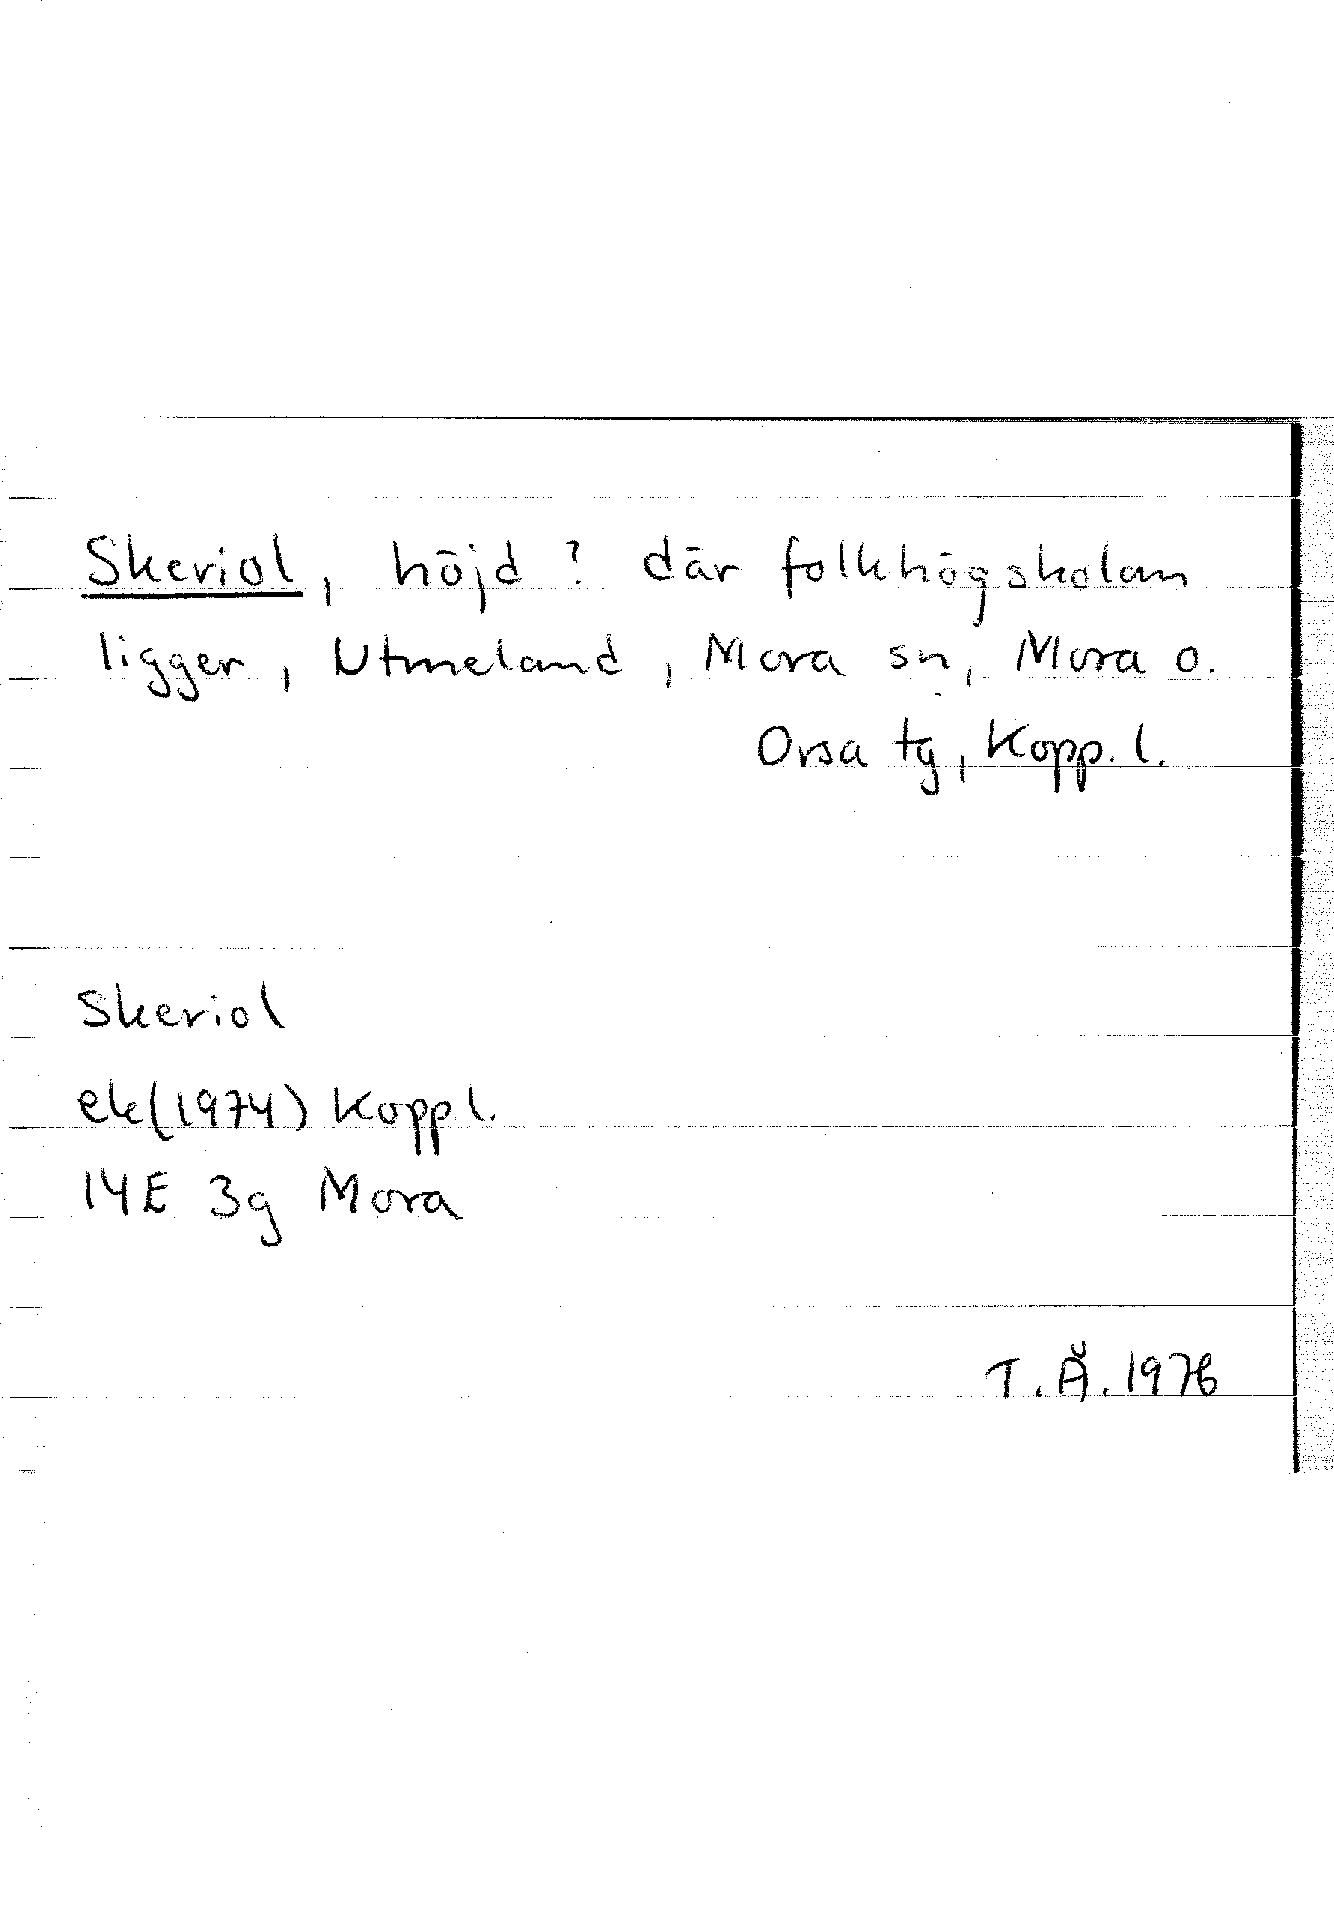 Skeriol, höjd? där folkhögskolan
ligger, Utmeland, Mora sn, Mora o.
Orsa tg, Kopp. l.
Skeriol
ek(1974) Kopp l.
14E 3g Mora
T. Å. 1976